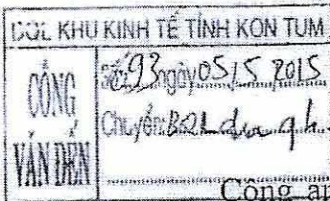 BQL KHU KINH TẾ TỈNH KON TUM
CÔNG VĂN ĐẾN
Số: 693 ngày 05/5 2015
Chuyển: BQL
Công an